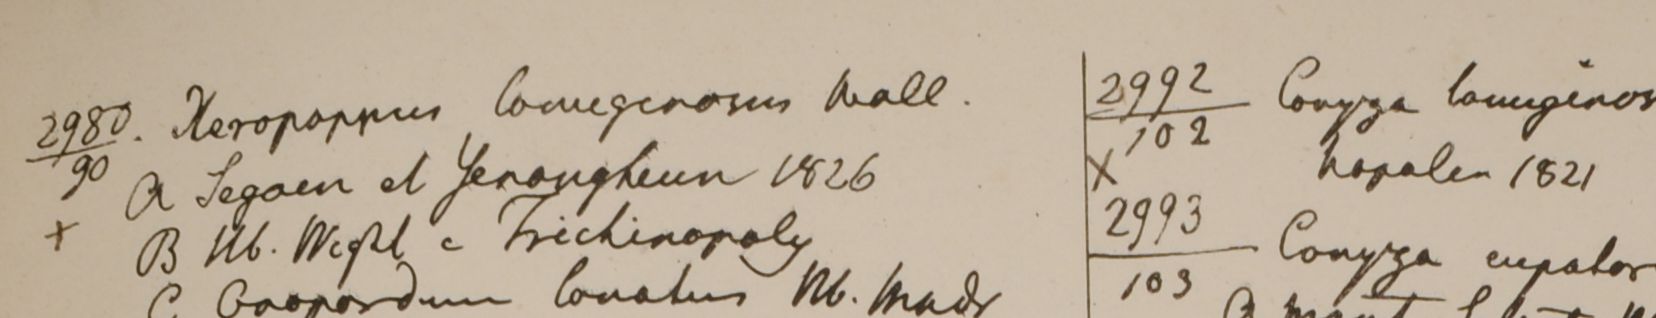 2980. Xeropappus lanuginosus Wall.
90
A Segaen et Yenangheun 1826
+ B Hb. Wight e Trichinopoly
C Onopordum lanatum Hb. Madr
2992 Conyza lanuginos
102
X Napalia 1821
2993 Conyza eupator
103